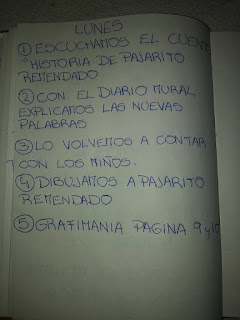 LUNES
① ESCUCHAMOS EL CUENTO
"HISTORIA DE PAJARITO
REMENDADO
② CON EL DIARIO MURAL
EXPLICAMOS LAS NUEVAS
PALABRAS
③ LO VOLVEMOS A CONTAR
CON LOS NIÑOS.
④ DIBUJAMOS A PAJARITO
REMENDADO
⑤ GRAFIMANIA PAGINA 9 y 10